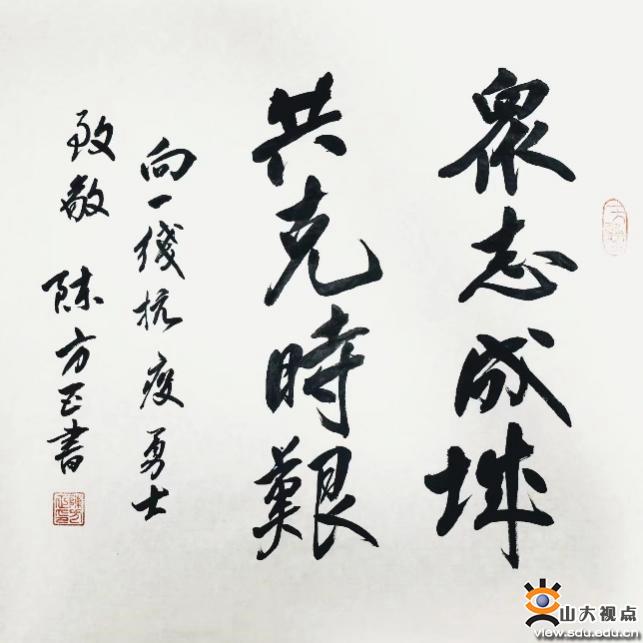 眾志成城
共克時艱
向一线抗疫勇士
致敬 陈方正書
山大视点
view.sdu.edu.cn